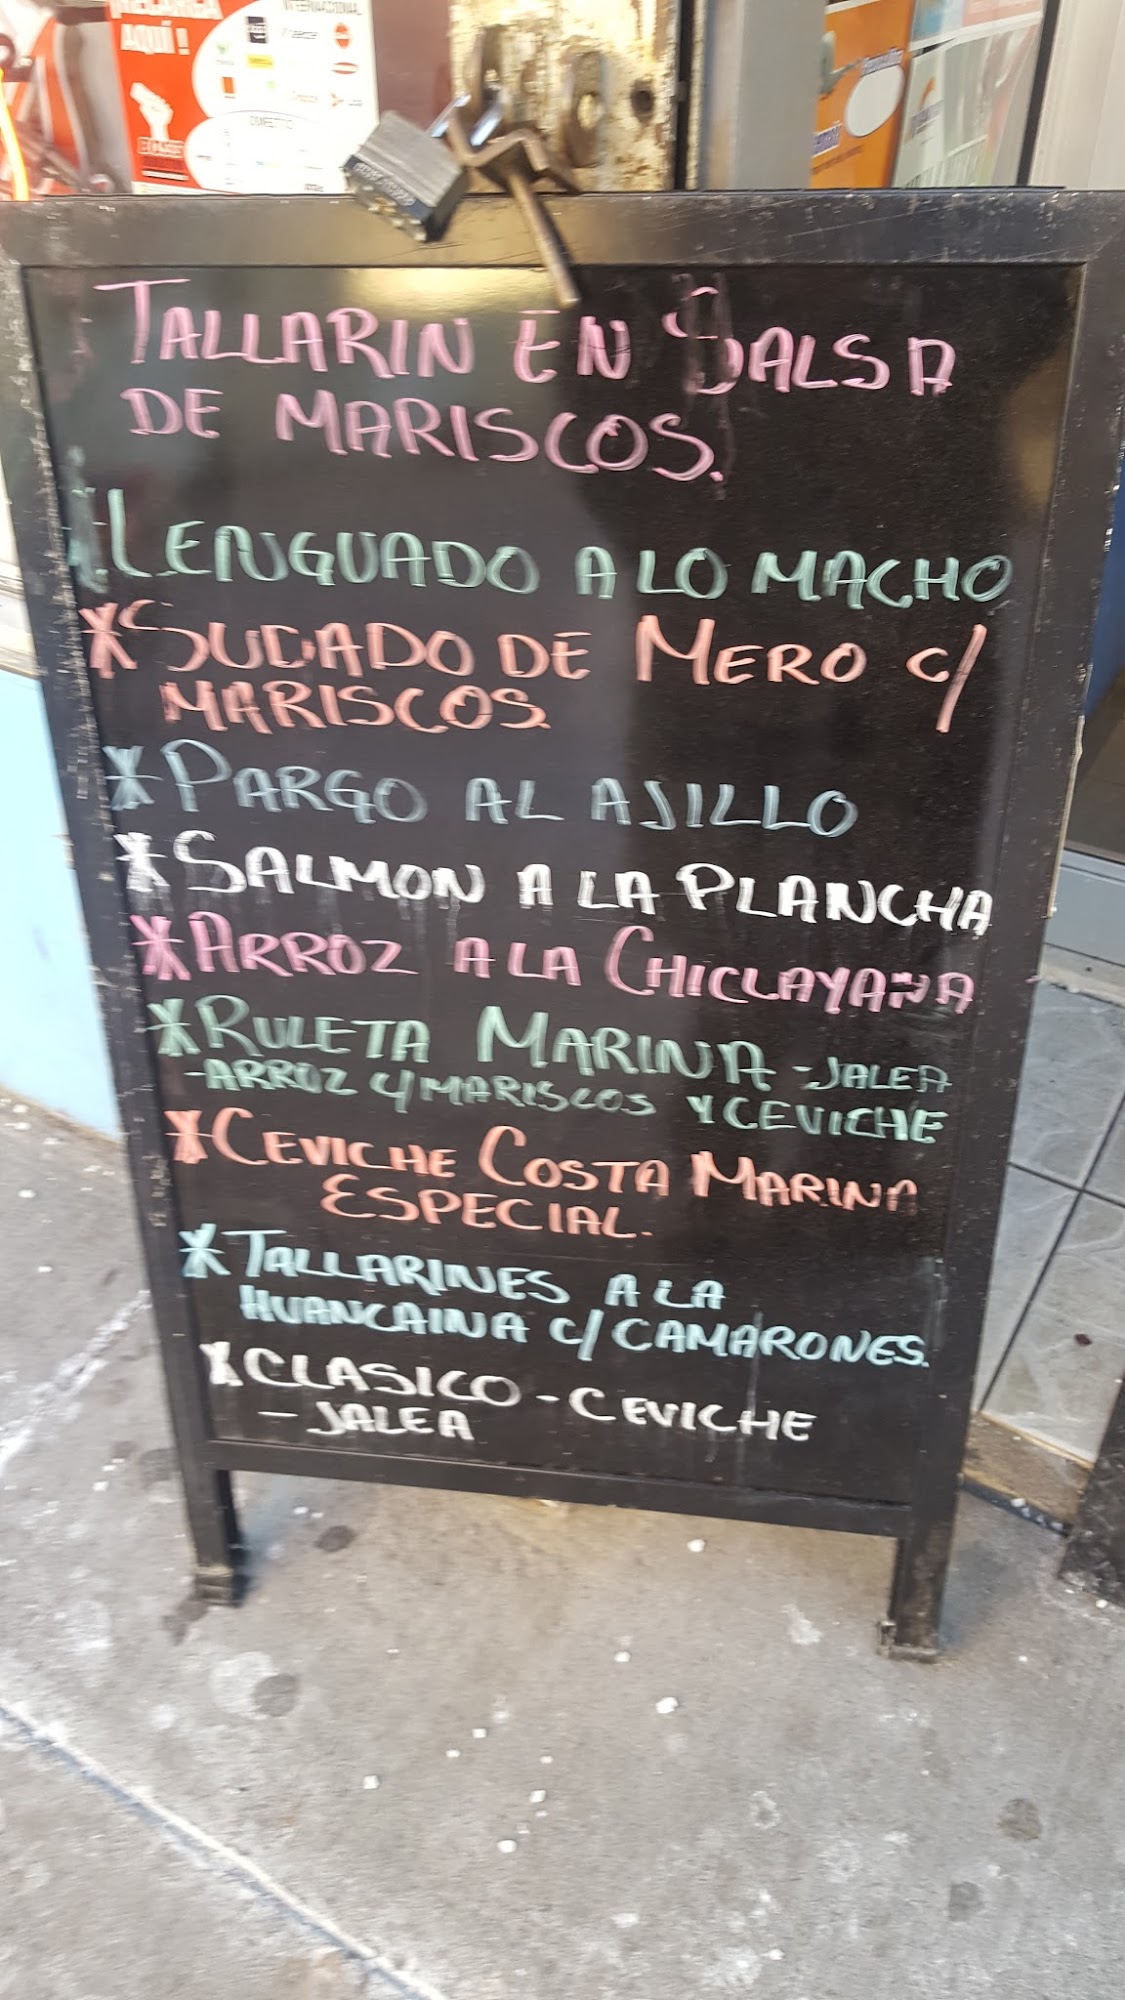 ¡RECARGA
AQUÍ!
INTERNACIONAL
DOMESTIC
TALLARIN EN SALSA
DE MARISCOS.
LENGUADO A LO MACHO
*SUDADO DE MERO C/
MARISCOS.
*PARGO AL AJILLO
*SALMON A LA PLANCHA
*ARROZ A LA CHICLAYANA
*RULETA MARINA -JALEA
-ARROZ C/MARISCOS Y CEVICHE
*CEVICHE COSTA MARINA
ESPECIAL.
*TALLARINES A LA
HUANCAINA C/CAMARONES.
*CLASICO - CEVICHE
- JALEA